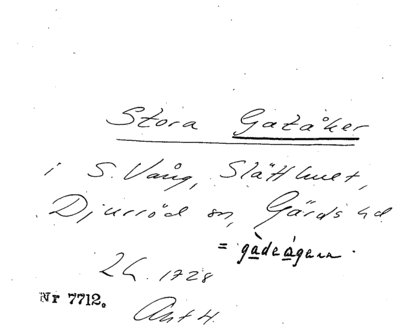 Stora Gatåker
i S. Vång, Slätthult,
Djurröd sn, Gärds hd
= gàdeágenn.
Lh. 1728
Nr 7712.
Akt 4.